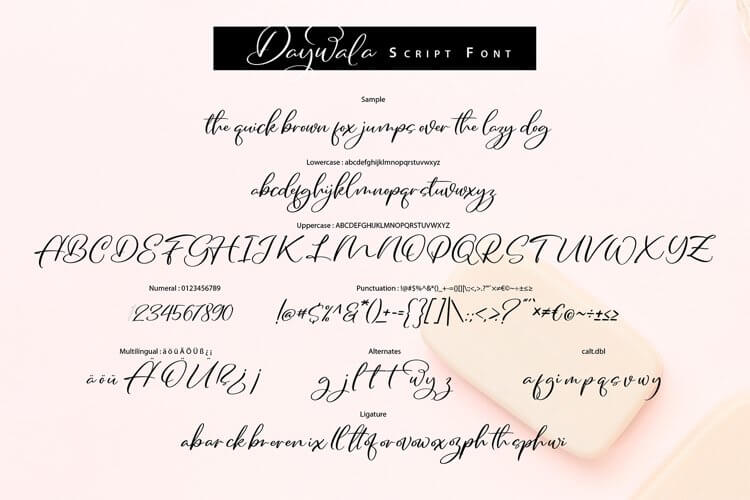 Daywala Script Font
Sample
the quick brown fox jumps over the lazy dog
Lowercase : abcdefghijklmnopqrstuvwxyz
abcdefghijklmnopqrstuvwxyz
Uppercase : ABCDEFGHIJKLMNOPQRSTUVWXYZ
ABCDEFGHIJKLMNOPQRSTUVWXYZ
Numeral : 0123456789
1234567890
Punctuation : !@#$%^&*()_+-={}[]|\:;<,>.?"'`×≠€©~÷±≤≥
!@#$%^&*()_+-={}[]|\:;<,>.?"'`×≠€©~÷±≤≥
Multilingual : ä ö ü Ä Ö Ü ß ¿ ¡
ä ö ü Ä Ö Ü ß ¿ ¡
Alternates
g j l t t t w y z
calt.dbl
a f g i m p q s v w y
Ligature
ab ar ck br er en ix ll lt tt of or ov ow ox oz ph th sp hw wi